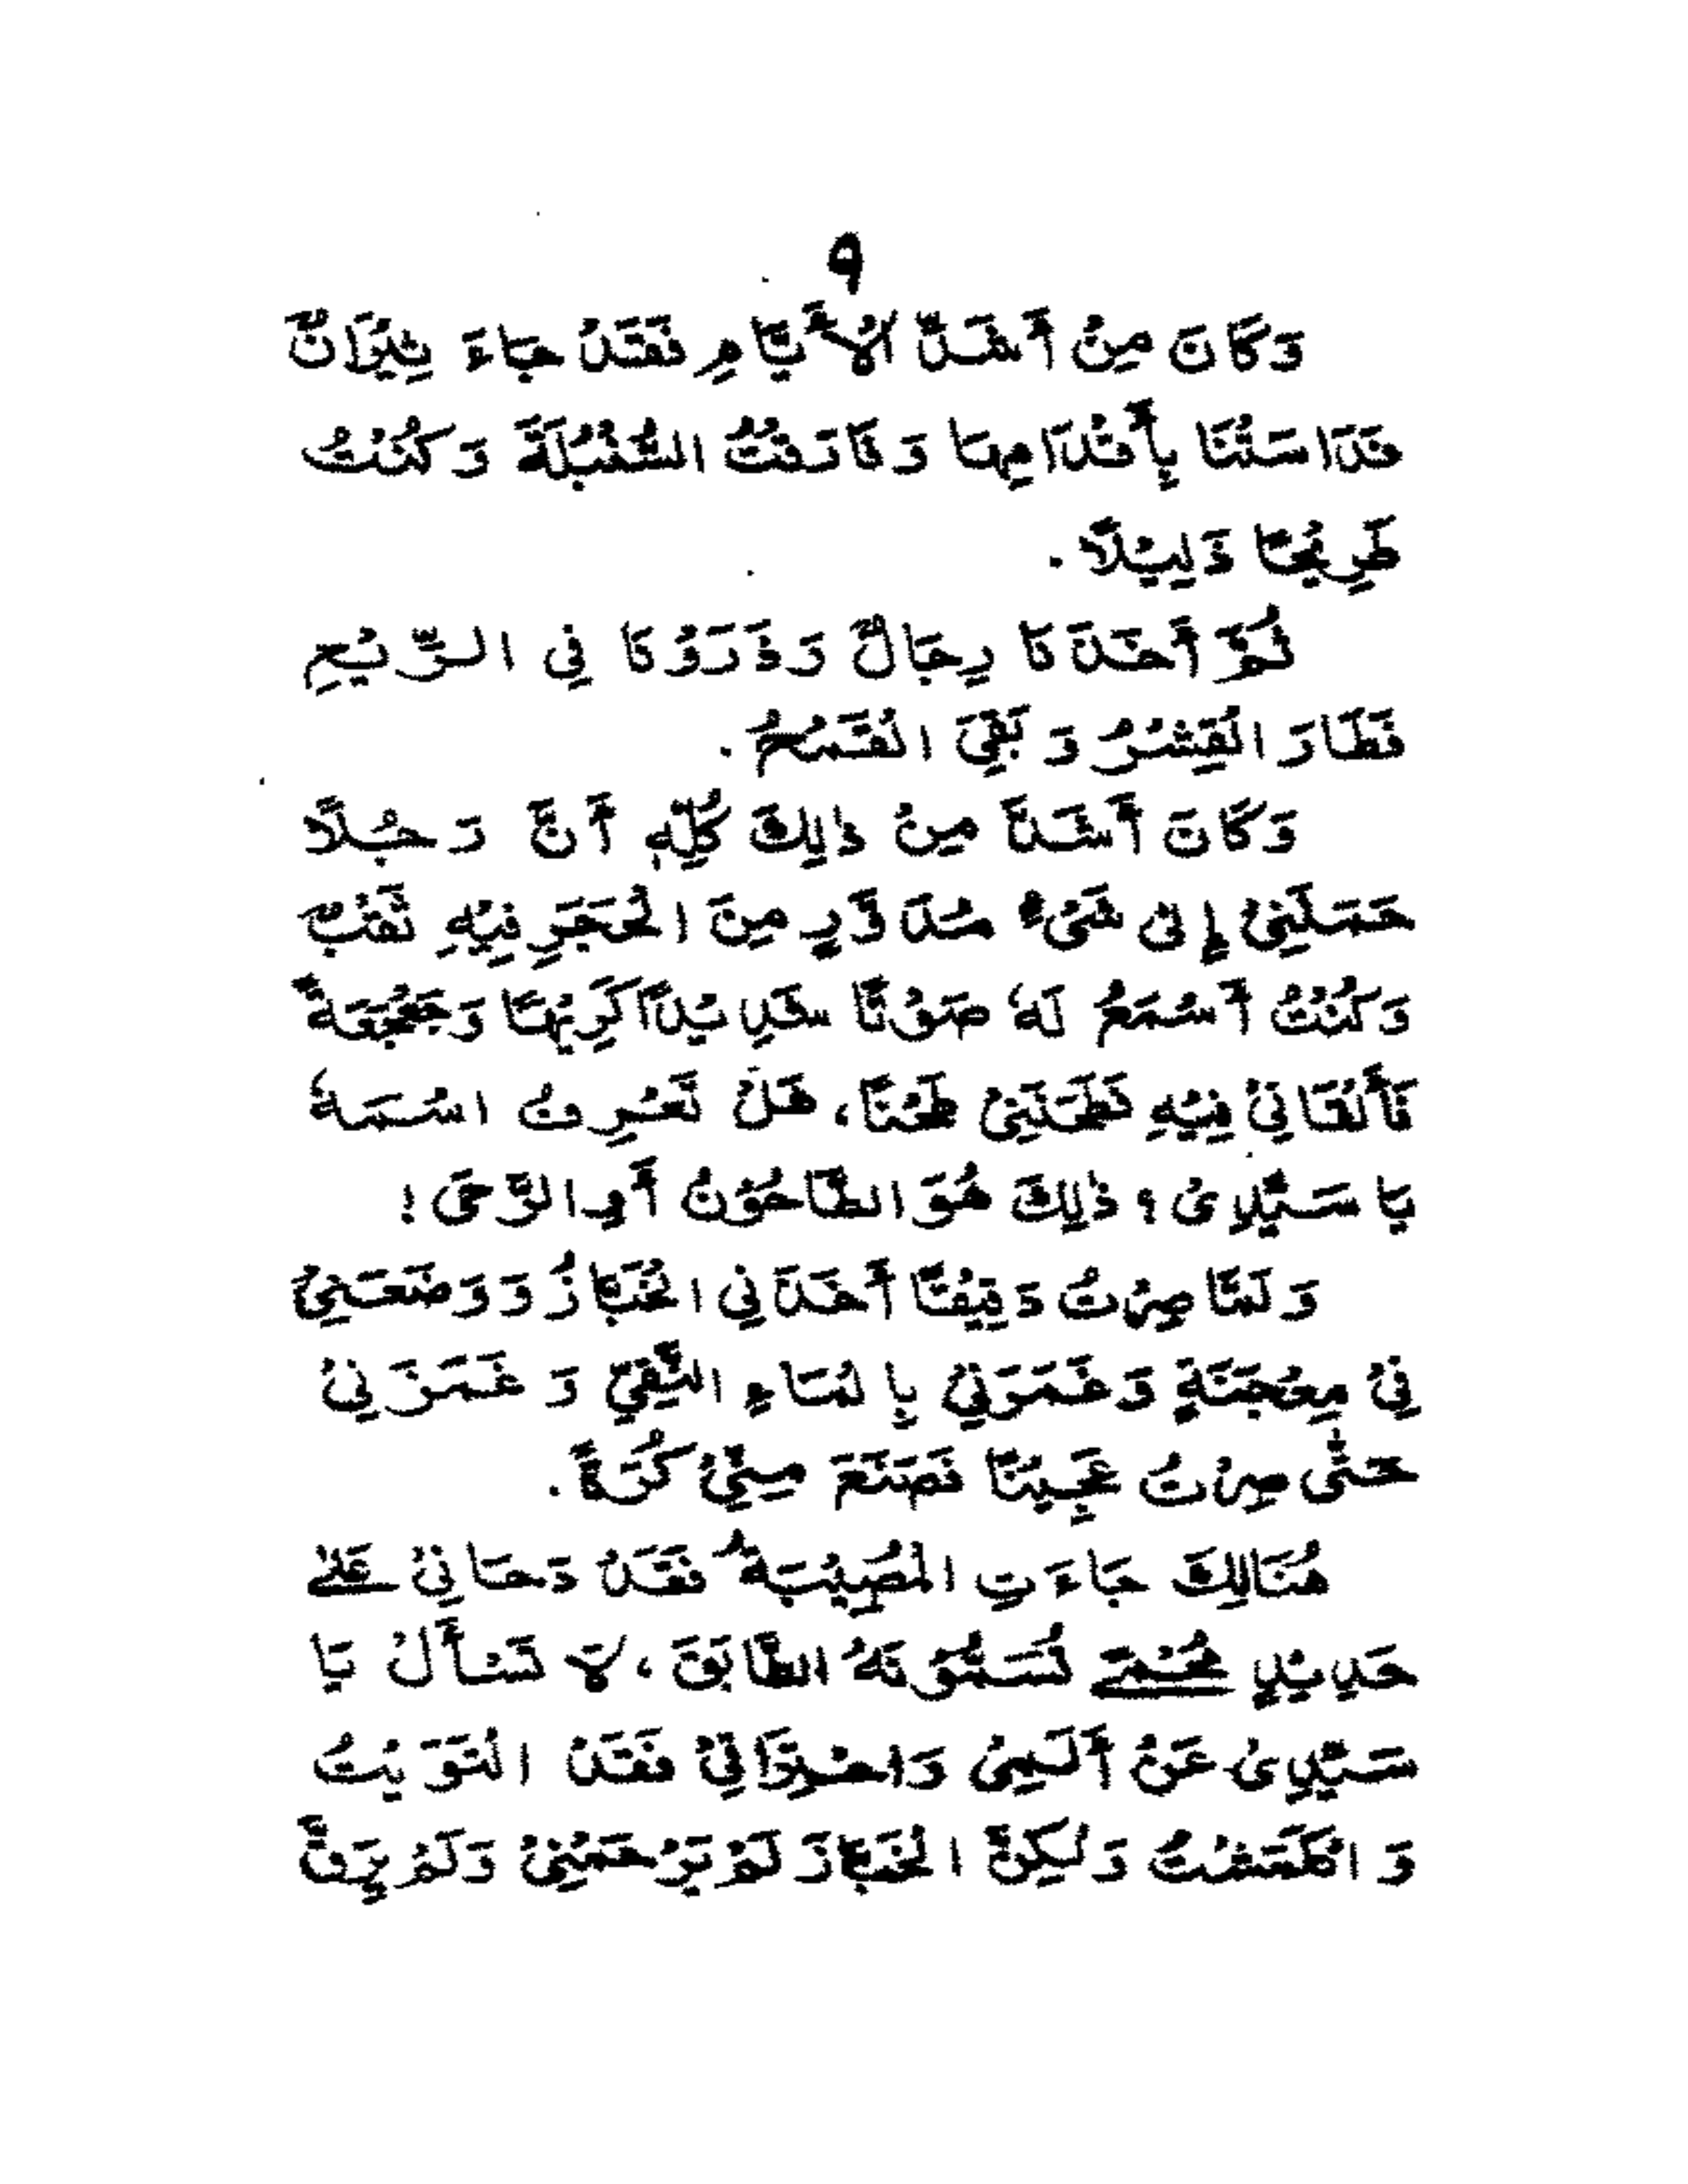 ٩
وَكَانَ مِنْ أَشَدِّ الْأَيَّامِ فَقَدْ جَاءَ ثِيْرَانٌ
فَدَاسَتْنَا بِأَقْدَامِهَا وَفَارَقْتُ السُّنْبُلَةَ وَكُنْتُ
طَرِيْحًا ذَلِيْلًا.
ثُمَّ أَخَذَنَا رِجَالٌ وَذَرَوْنَا فِي الرِّيْحِ
فَطَارَ الْقِشْرُ وَبَقِيَ الْقَمْحُ.
وَكَانَ أَشَدَّ مِنْ ذٰلِكَ كُلِّهٖ أَنَّ رَجُلًا
حَمَلَنِيْ إِلىٰ شَيْءٍ مُدَوَّرٍ مِنَ الْحَجَرِ فِيْهِ ثَقْبٌ
وَكُنْتُ أَسْمَعُ لَهٗ صَوْتًا شَدِيْدًا كَرِيْهًا وَجَعْجَعَةً
فَأَلْقَانِيْ فِيْهِ فَطَحَنَنِيْ طَحْنًا، هَلْ تَعْرِفُ اسْمَهٗ
يَا سَيِّدِىْ؟ ذٰلِكَ هُوَ الطَّاحُوْنُ أَوِ الرَّحىٰ!
وَلَمَّا صِرْتُ دَقِيْقًا أَخَذَنِي الْخَبَّازُ وَوَضَعَنِيْ
فِيْ مِعْجَنَةٍ وَغَمَرَنِيْ بِالْمَاءِ النَّقِيِّ وَغَمَزَنِيْ
حَتّٰى صِرْتُ عَجِيْنًا فَصَنَعَ مِنِّيْ كُرَةً.
هُنَالِكَ جَاءَتِ الْمُصِيْبَةُ فَقَدْ دَحَانِيْ عَلىٰ
حَدِيْدٍ مُحْمًى تُسَمُّوْنَهُ الطَّابَقَ، لَا تَسْأَلْ يَا
سَيِّدِىْ عَنْ أَلَمِيْ وَاحْتِرَاقِيْ فَقَدْ الْتَوَيْتُ
وَانْكَمَشْتُ وَلٰكِنَّ الْخَبَّازَ لَمْ يَرْحَمْنِيْ وَلَمْ يَرِقَّ